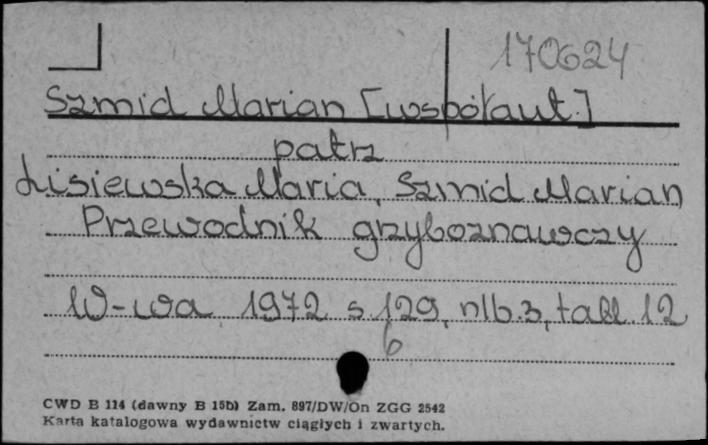 170624
Szmid Marian [współaut.]
patrz
Lisiewska Maria, Szmid Marian
Przewodnik grzyboznawczy
W-wa 1972 s 129, nlb. 3, tabl 12
6
CWD B 114 (dawny B 15b) Zam. 897/DW/On ZGG 2542
Karta katalogowa wydawnictw ciągłych i zwartych.